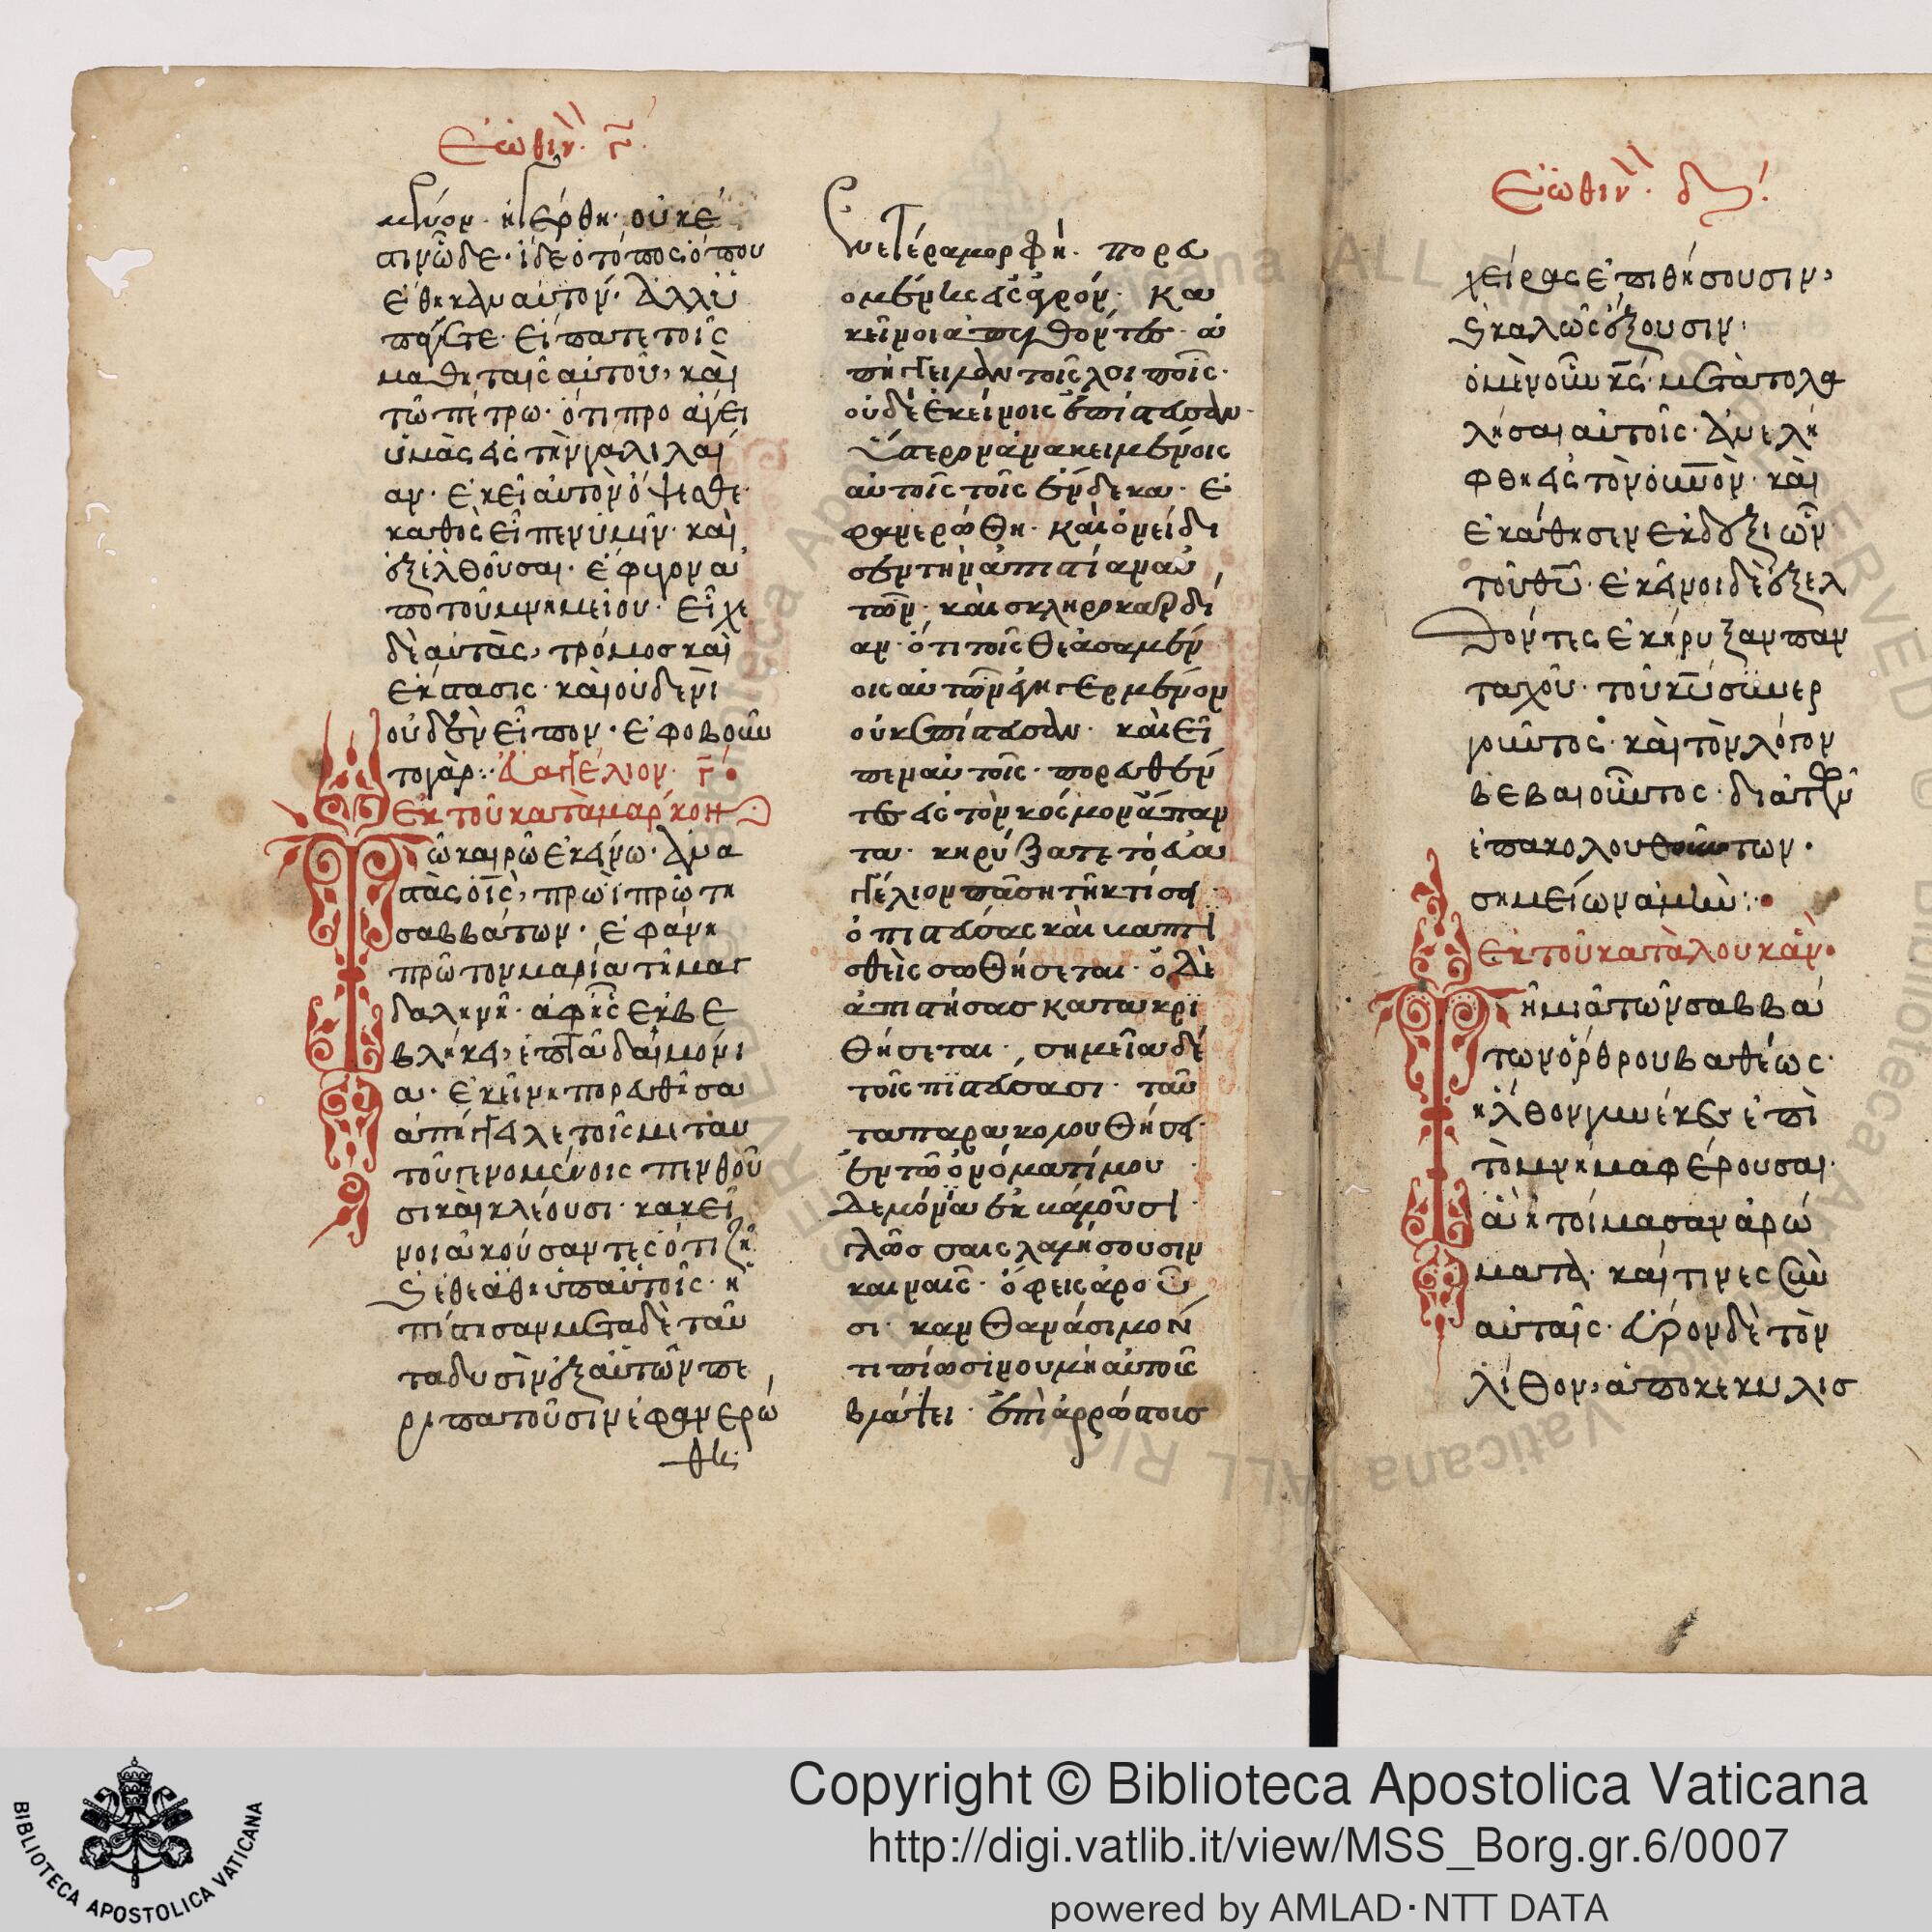 Ἑωθιν. γ̄.
μένον· ἠγέρθη· οὐκ ἔ
στιν ὧδε· ἴδε ὁ τόπος ὅπου
ἔθηκαν αὐτόν· ἀλλ' ὑ
πάγετε· εἴπατε τοῖς
μαθηταῖς αὐτοῦ, καὶ
τῶ πέτρω· ὅτι προάγει
ὑμᾶς εἰς τὴν γαλιλαί
αν· ἐκεῖ αὐτὸν ὄψεσθε·
καθὸς εἶπεν ὑμῖν· καὶ
ἐξελθοῦσαι· ἔφυγον ἀ
πο τοῦ μνημείου· εἶχε
δὲ αὐτὰς, τρόμος καὶ
ἔκστασις· καὶ οὐδενὶ
οὐδὲν εἶπον· ἐφοβοῦν
το γάρ:· εὐαγγέλιον· γ̄·
Ἐκ τοῦ κατὰ μαρκον
ῶ καιρῶ ἐκείνω· ἀνα
στὰς ὁ ἰς, πρωῒ πρώτη
σαββάτων· ἐφάνη
πρῶτον μαρία τῆ μαγ
δαληνῆ· ἀφ' ἧς ἐκβε
βλήκει, ἑπτὰ δαιμόνι
α· ἐκείνη πορευθῆσα
ἀπήγγειλε τοῖς μετ' αυ
τοῦ γενομένοις πενθοῦ
σι καὶ κλέουσι· κακεῖ
νοι ἀκούσαντες ὅτι ζῆ
καὶ ἐθεάθη ὑπ' αὐτοῖς· ἠ
πίστησαν μετα δὲ ταῦ
τα δυσὶν ἐξ αὐτῶν πε
ριπατοῦσιν ἐφανερώ
θη·
ἐν ἑτέρα μορφῆ· πορευ
ομένοις εἰς ἀγρόν· Κα
κεῖνοι ἀπελθόντες· ἀ
πήγγειλαν τοῖς λοιποῖς·
οὐδὲ ἐκείνοις ἐπίστευσαν·
Ὕστερον ἀνακειμένοις
αὐτοῖς τοῖς ἕνδεκα· ἐ
φανερώθη· καὶ ὀνείδι
σεν τὴν ἀπιστίαν αὐ
τῶν· καὶ σκληροκαρδί
αν· ὅτι τοῖς θεασαμέν
οις αὐτῶν ἐγηγερμένον
οὐκ ἐπίστευσαν· καὶ εἶ
πεν αὐτοῖς· πορευθέν
τες εἰς τὸν κόσμον ἅπαν
τα· κηρύξατε τὸ εὐα
γγέλιον πάση τῆ κτίσει·
ὁ πιστεύσας καὶ βαπτι
σθεὶς σωθήσεται· ὁ δὲ
ἀπιστήσας κατακρι
θήσεται· σημεῖα δὲ
τοῖς πιστεύσασι· ταῦ
τα παρακολουθήσει·
ἐν τῶ ὀνόματί μου
δεμόνια ἐκβάλοῦσι·
γλώσσαις λαλήσουσιν
καιναῖς· ὄφεις ἀροῦ
σι· καν θανάσιμόν
τι πίωσιν οὐ μὴ αὐτοῖς
βλάψει· ἐπὶ ἀρρώστοις
Ἑωθιν. δ.
χεῖρας ἐπιθήσουσιν,
καὶ καλῶς ἕξουσιν·
ὁ μὲν οὖν κς· μετὰ το λα
λῆσαι αὐτοῖς· ἀνελή
φθη εἰς τὸν οὐνὸν· καὶ
ἐκάθησεν ἐκ δεξιῶν
τοῦ θῦ· ἐκεῖνοι δὲ ἐξελ
θόντες ἐκήρυξαν παν
ταχοῦ· τοῦ κυ συνερ
γοῦντος· καὶ τὸν λόγον
βεβαιοῦντος· διὰ τῶν
ἐπακολουθούντων·
σημείων ἀμήν:·
Ἐκ τοῦ κατὰ λουκάν·
ῆ μιᾶ τῶν σαββά
των ὄρθρου βαθέως·
ἦλθον γυνέκες ἐπὶ
τὸ μνῆμα φέρουσαι·
ἃ ἡτοίμασαν ἀρώ
ματα· καὶ τινες σὺν
αὐταῖς· εὗρον δὲ τὸν
λίθον, ἀποκεκυλισ
BIBLIOTECA APOSTOLICA VATICANA
Copyright © Biblioteca Apostolica Vaticana
http://digi.vatlib.it/view/MSS_Borg.gr.6/0007
powered by AMLAD·NTT DATA